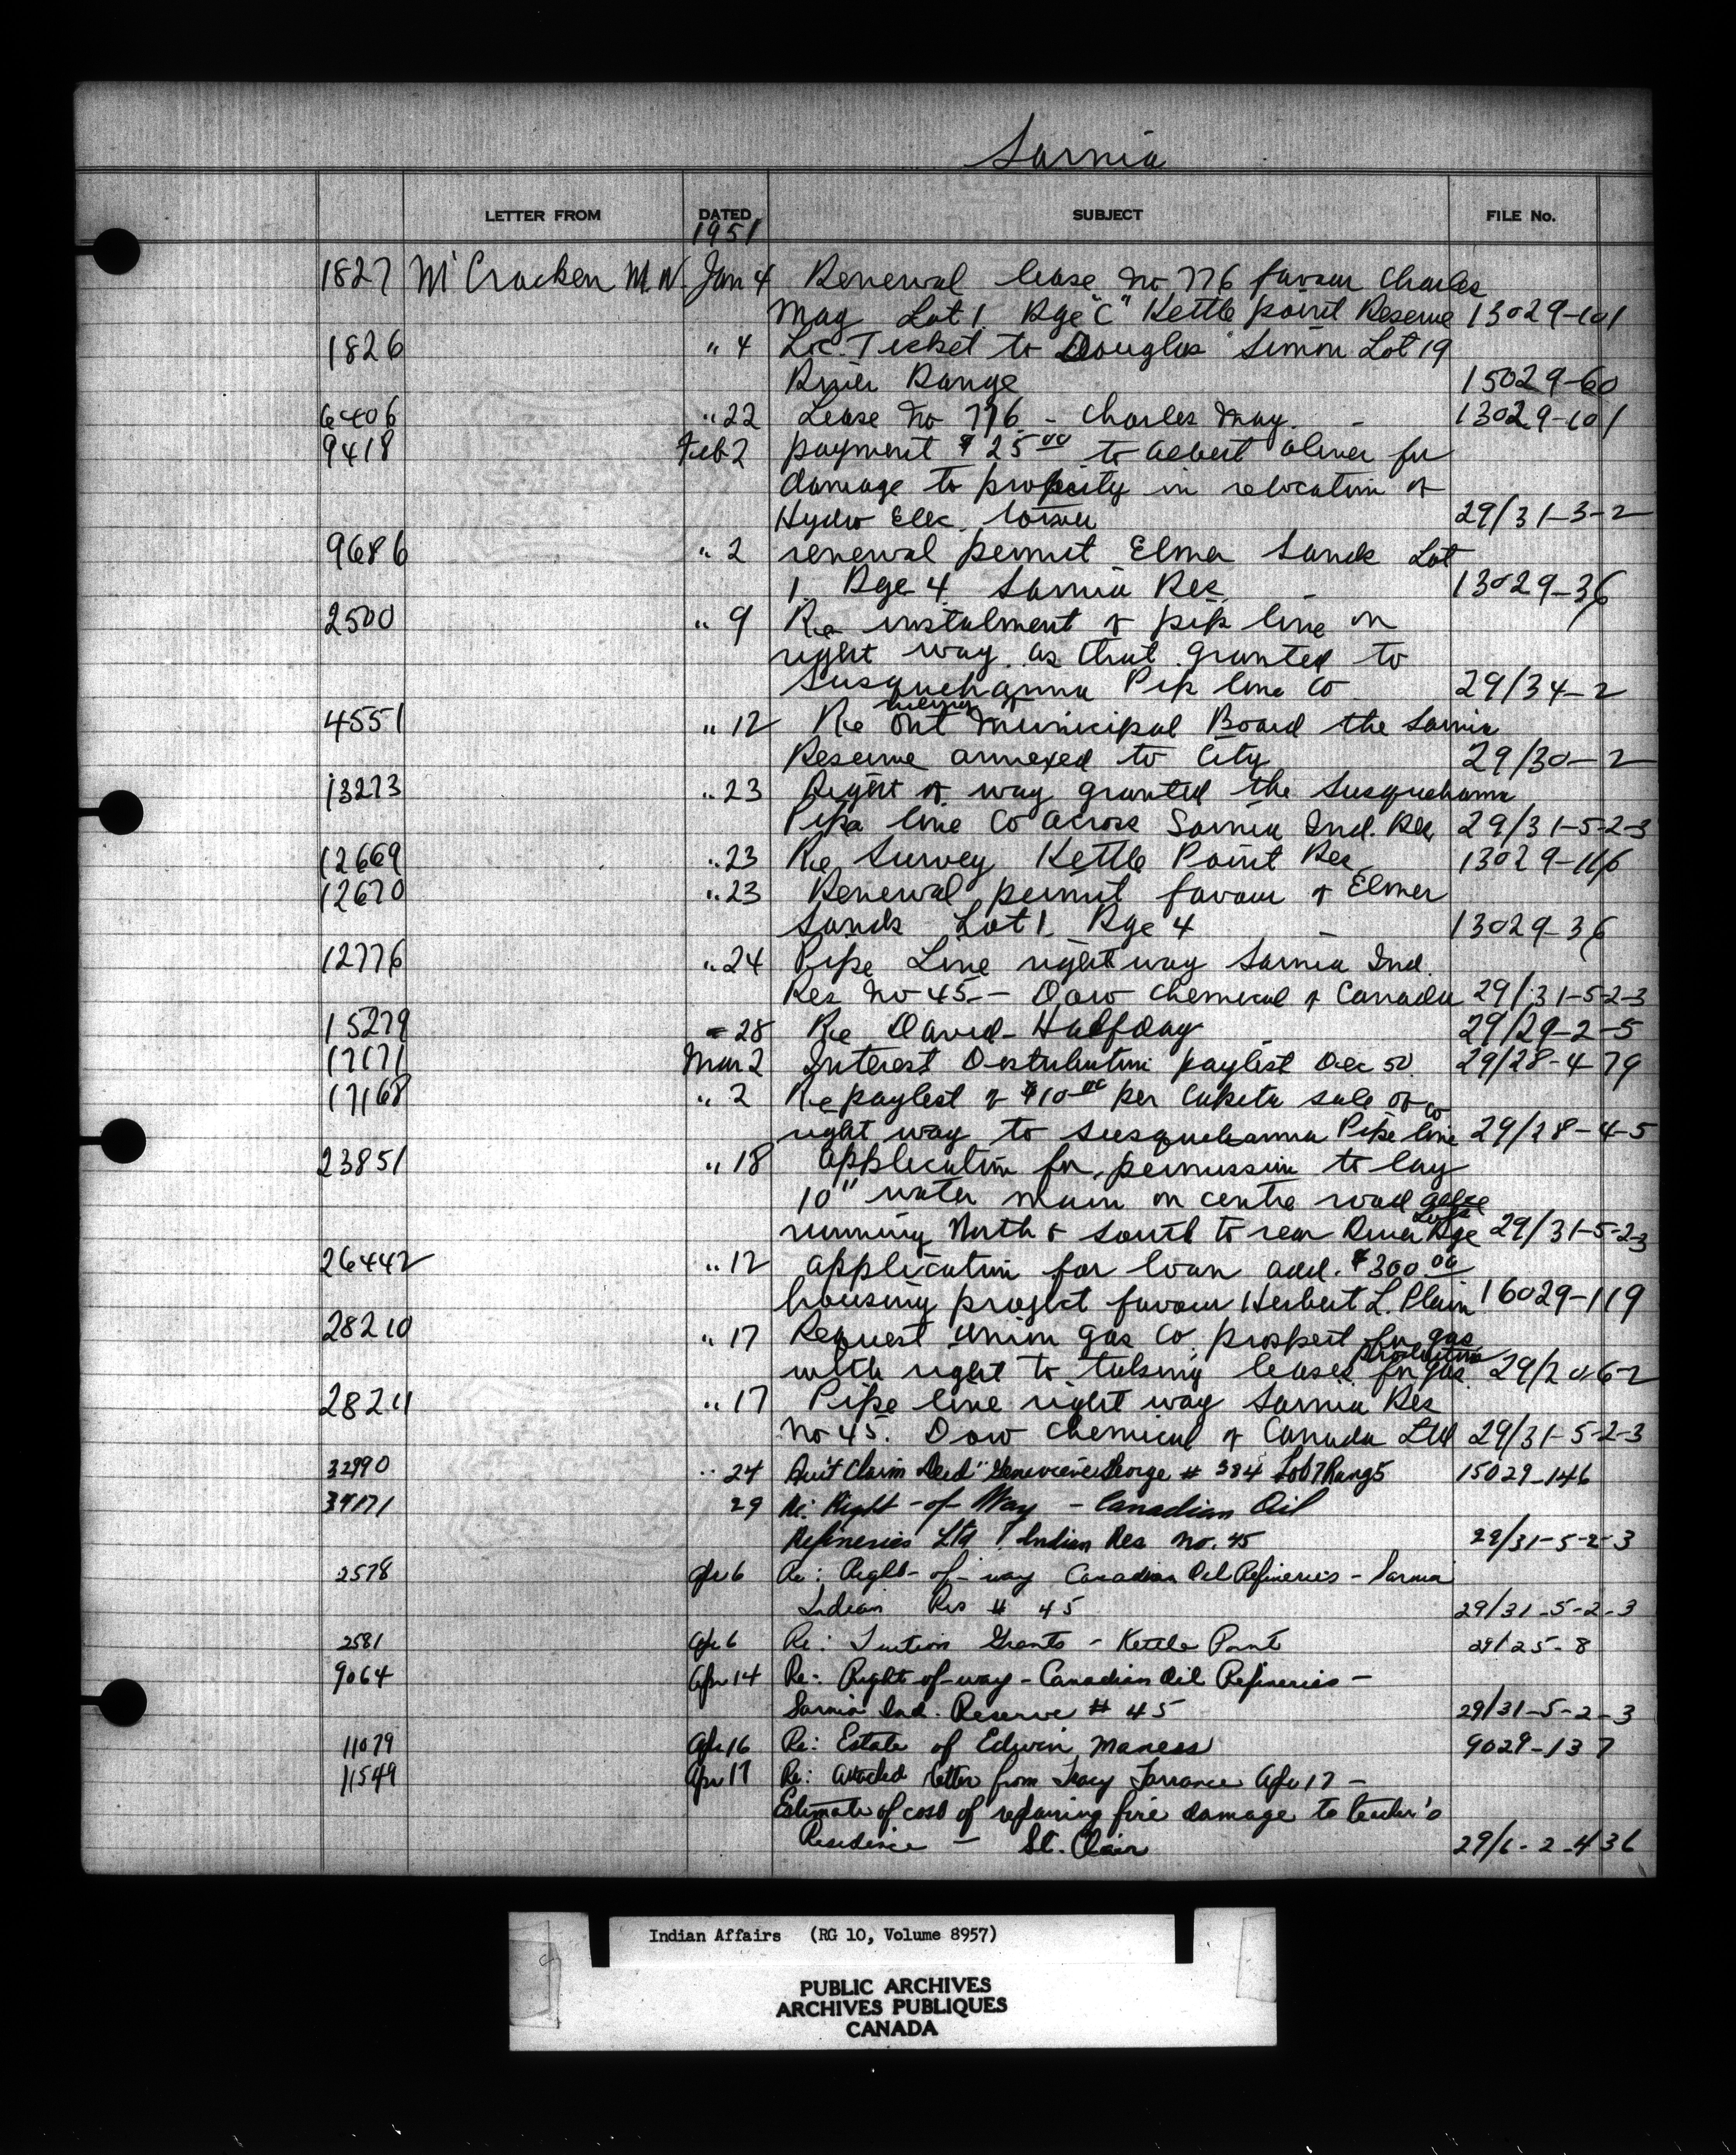 Sarnia
LETTER FROM DATED SUBJECT FILE No.
1951
1827 McCracken M.W. Jan 4 Renewal lease No 776 favour Charles
May Lot 1 Rge "C" Kettle point Reserve 13029-101
1826 " 4 Loc. Ticket to Douglas Simon Lot 19
River Range 15029-60
6406 " 22 Lease No 776 - Charles May. - 13029-101
9418 Feb 2 payment $25.00 to Albert Oliver for
damage to property in relocation of
Hydro Elec. tower 29/31-3-2
9686 " 2 renewal permit Elmer Sands Lot
1 Rge 4 Sarnia Res. - 13029-36
2500 " 9 Re instalment of pip line on
right way as that granted to
Susquehanna Pip line Co 29/34-2
4551 " 12 Re Ont Municipal Board the Sarnia
Reserve annexed to City 29/30-2
13273 " 23 Right of way granted the Susquehanna
Pipe line Co across Sarnia Ind. Res 29/31-5-2-3
12669 " 23 Re Survey Kettle Point Res 13029-116
12670 " 23 Renewal permit favour of Elmer
Sands Lot 1 Rge 4 - 13029-36
12776 " 24 Pipe Line right way Sarnia Ind.
Res No 45 - Dow Chemical of Canada 29/31-5-2-3
15279 " 28 Re David Halfday 29/29-2-5
17171 Mar 2 Interest Distribution paylist Dec 50 29/28-4-79
17168 " 2 Re paylist of $10.00 per Capita sale of
right way to Susquehanna Pipe line Co 29/28-4-5
23851 " 18 application for permission to lay
10" water main on centre road
running North & South to rear River Rge 29/31-5-2-3
26442 " 12 application for loan add. $300.00
housing project favour Herbert L. Plain 16029-119
28210 " 17 Request Union Gas Co. prospect for gas
with right to taking leases for gas production 29/20-6-2
28211 " 17 Pipe line right way Sarnia Res
No 45. Dow Chemical of Canada Ltd 29/31-5-2-3
32990 " 24 Quit Claim Deed" Genevieve George # 384 Lot 7 Rang 5 15029-146
34171 29 Re: Right-of-Way - Canadian Oil
Refineries Ltd Indian Res No. 45 29/31-5-2-3
2578 Apr 6 Re: Right-of-way Canadian Oil Refineries - Sarnia
Indian Res # 45 29/31-5-2-3
2581 Apr 6 Re: Tuition Grants - Kettle Point 29/25-8
9064 Apr 14 Re: Right-of-way - Canadian Oil Refineries -
Sarnia Ind. Reserve # 45 29/31-5-2-3
11079 Apr 16 Re: Estate of Edwin Maness 9029-137
11549 Apr 17 Re: Attached letter from Tracy Torrance Apr 17 -
Estimate of cost of repairing fire damage to teacher's
Residence - St. Clair 29/6-2-436
Indian Affairs (RG 10, Volume 8957)
PUBLIC ARCHIVES
ARCHIVES PUBLIQUES
CANADA